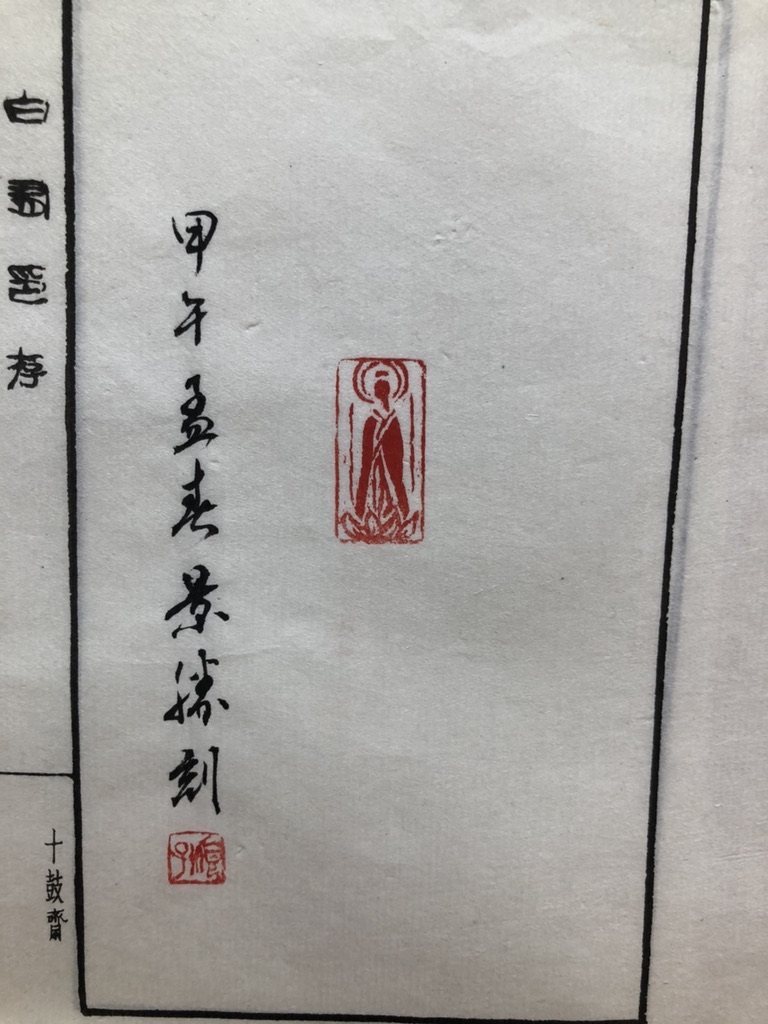 甲午孟春景勝刻
白圂印存
十鼓齋